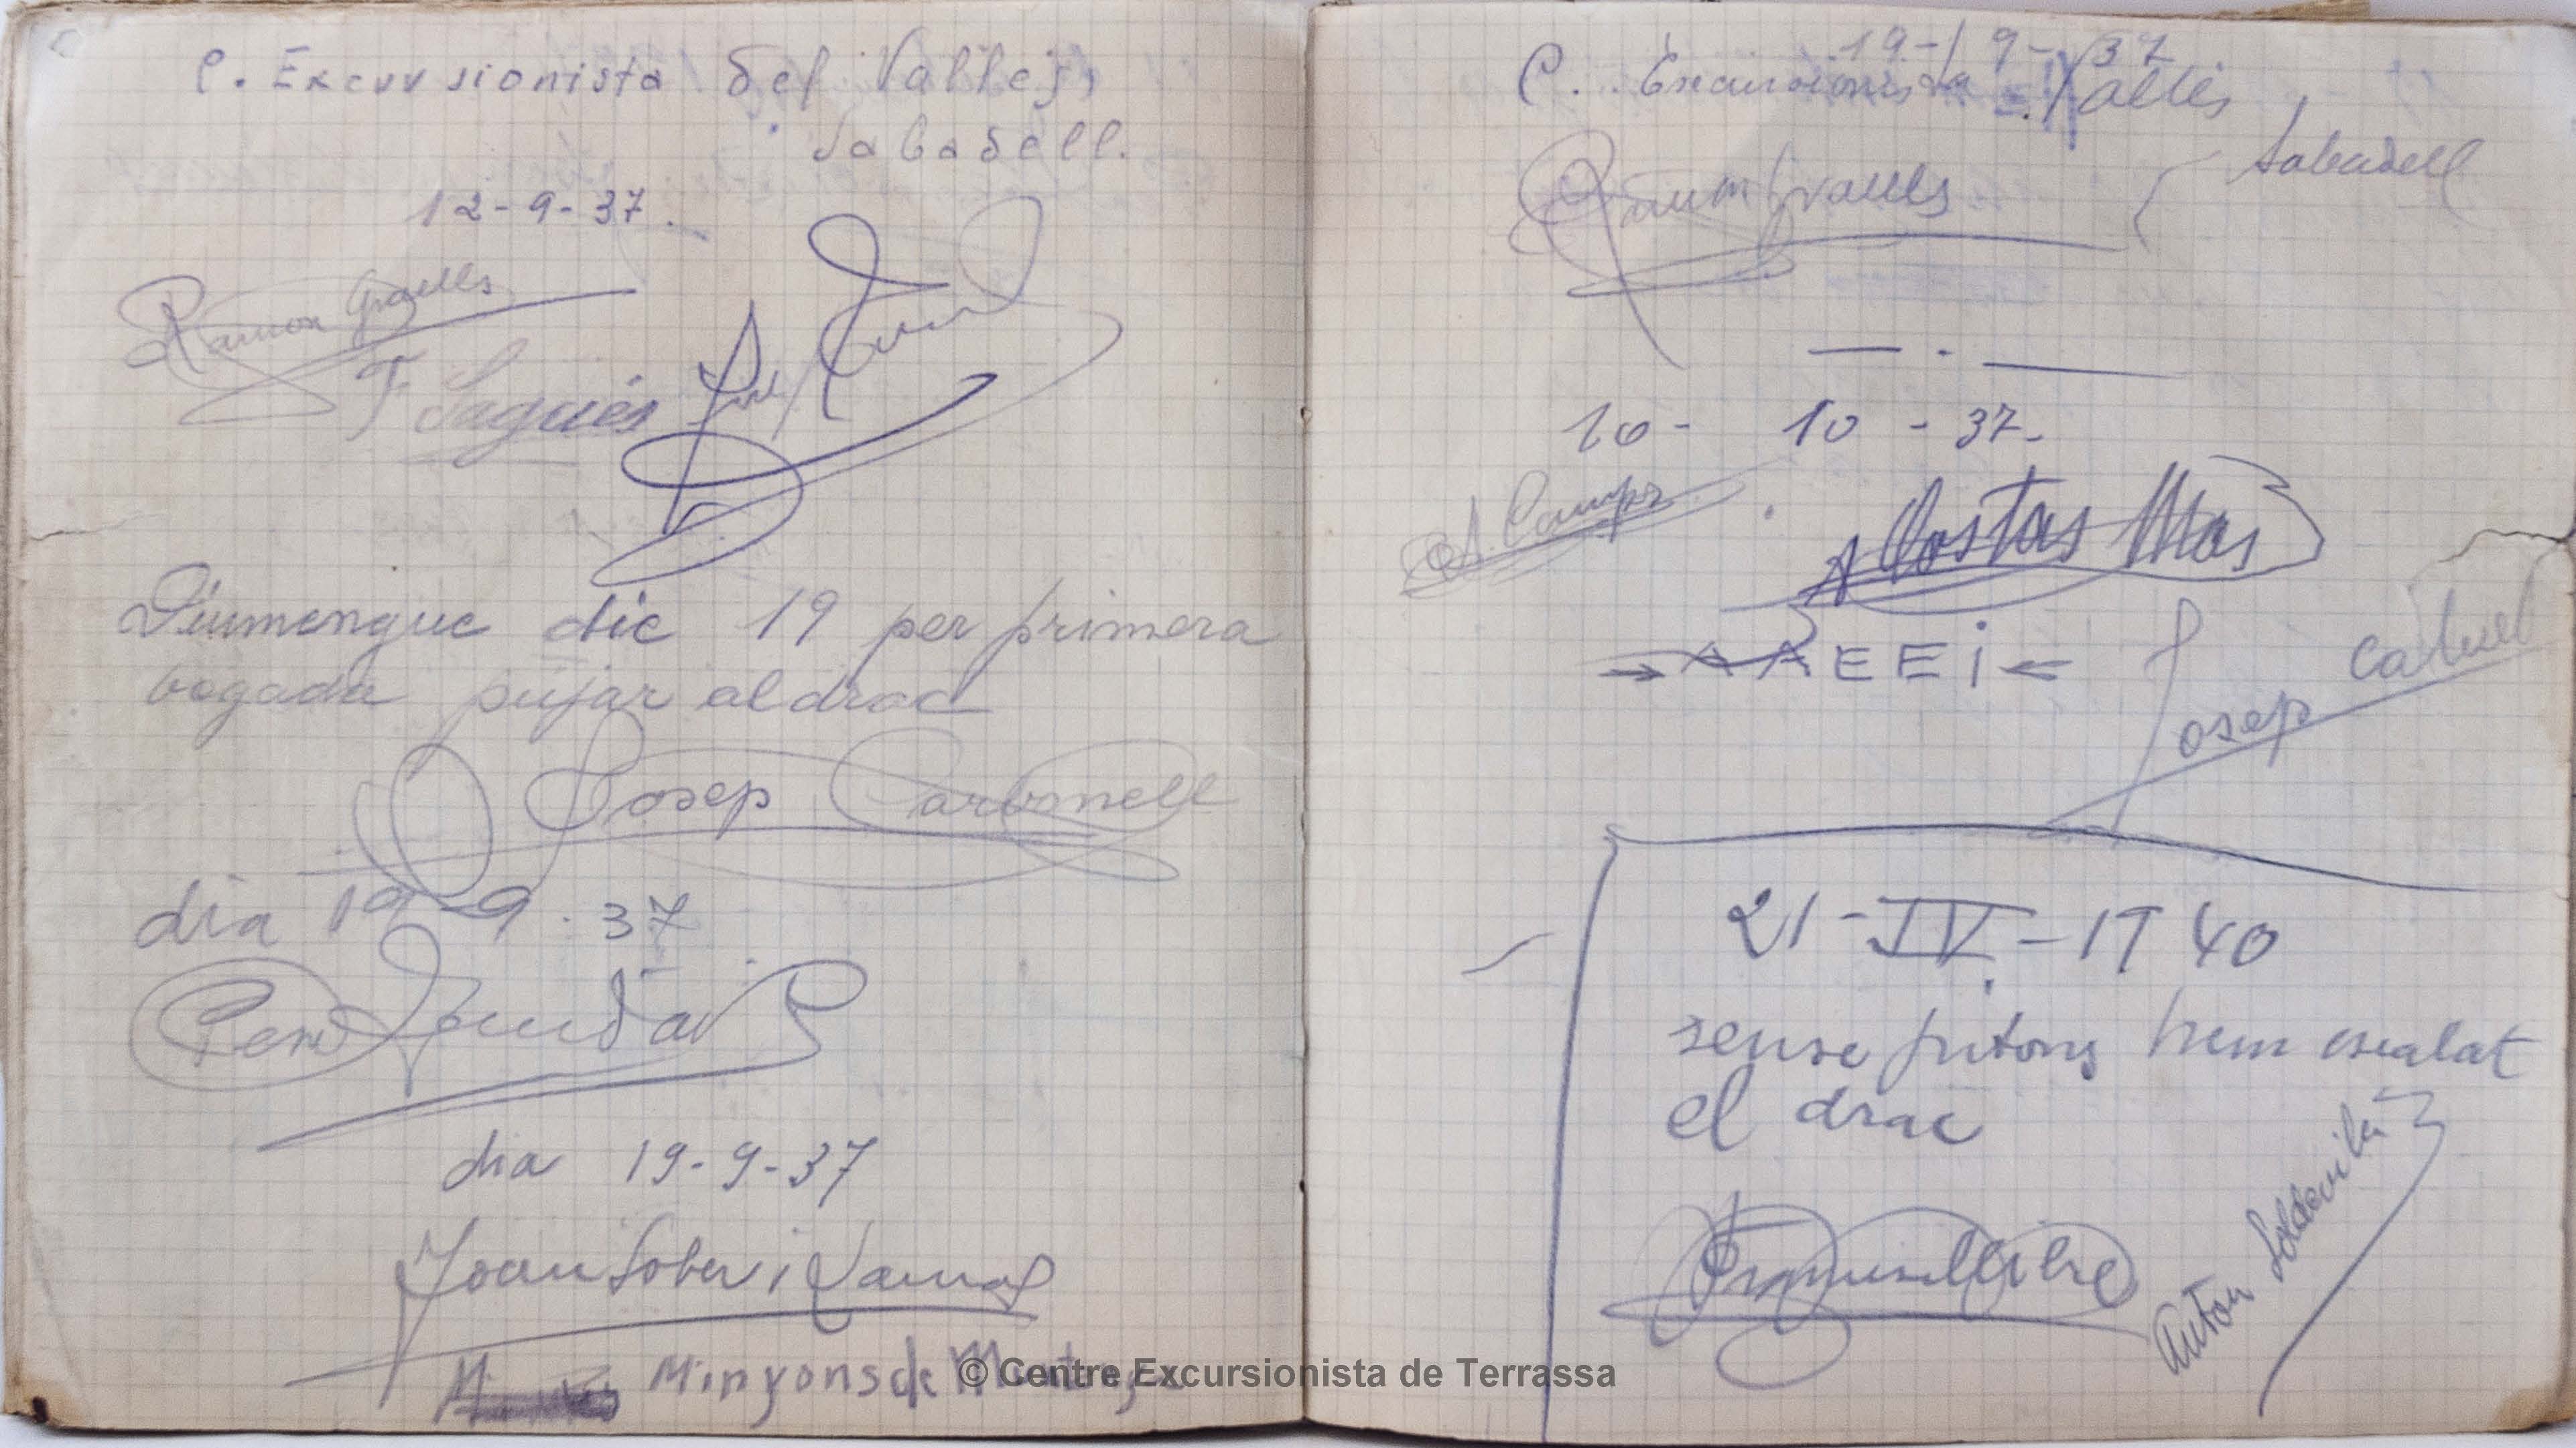 C. Excursionista del Valles
Sabadell.
12-9-37.
Ramon Graells
F Sagués
Diumengue dic 19 per primera
begada pujar al drac
Josep Carbonell
dia 19-9-37
Pere
dia 19-9-37
Joan Sober i
Minyons de Muntanya
19-9-37
C. Excursionista Vallès
Ramon Graells
Sabadell
10-10-37-
A. Camps
A Costas Mas
→AAEEi←
Josep
21-IV-1940
sense pitons hem escalat
el drac
Anton Soldevila
© Centre Excursionista de Terrassa